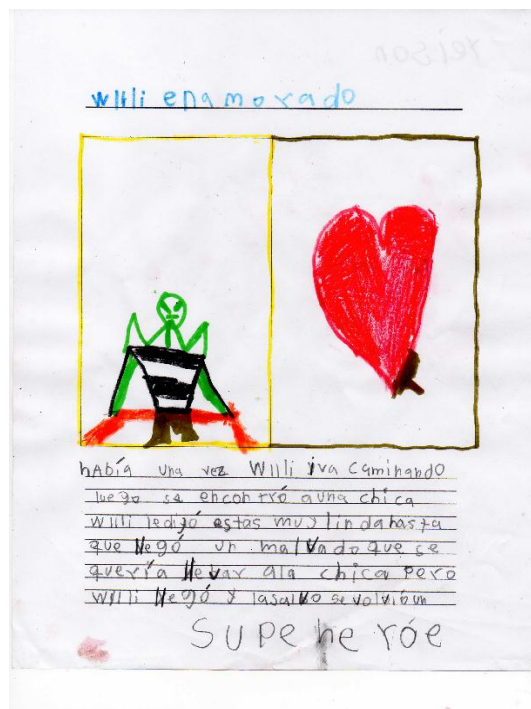 willi enamorado
hAbía una vez Willi iva caminando
luego se encontró auna chica
willi ledijó estas muy lindahasta
que llegó un malvado que se
quería llevar ala chica pero
willi llegó y lasalvo se volvióun
SUPe he róe